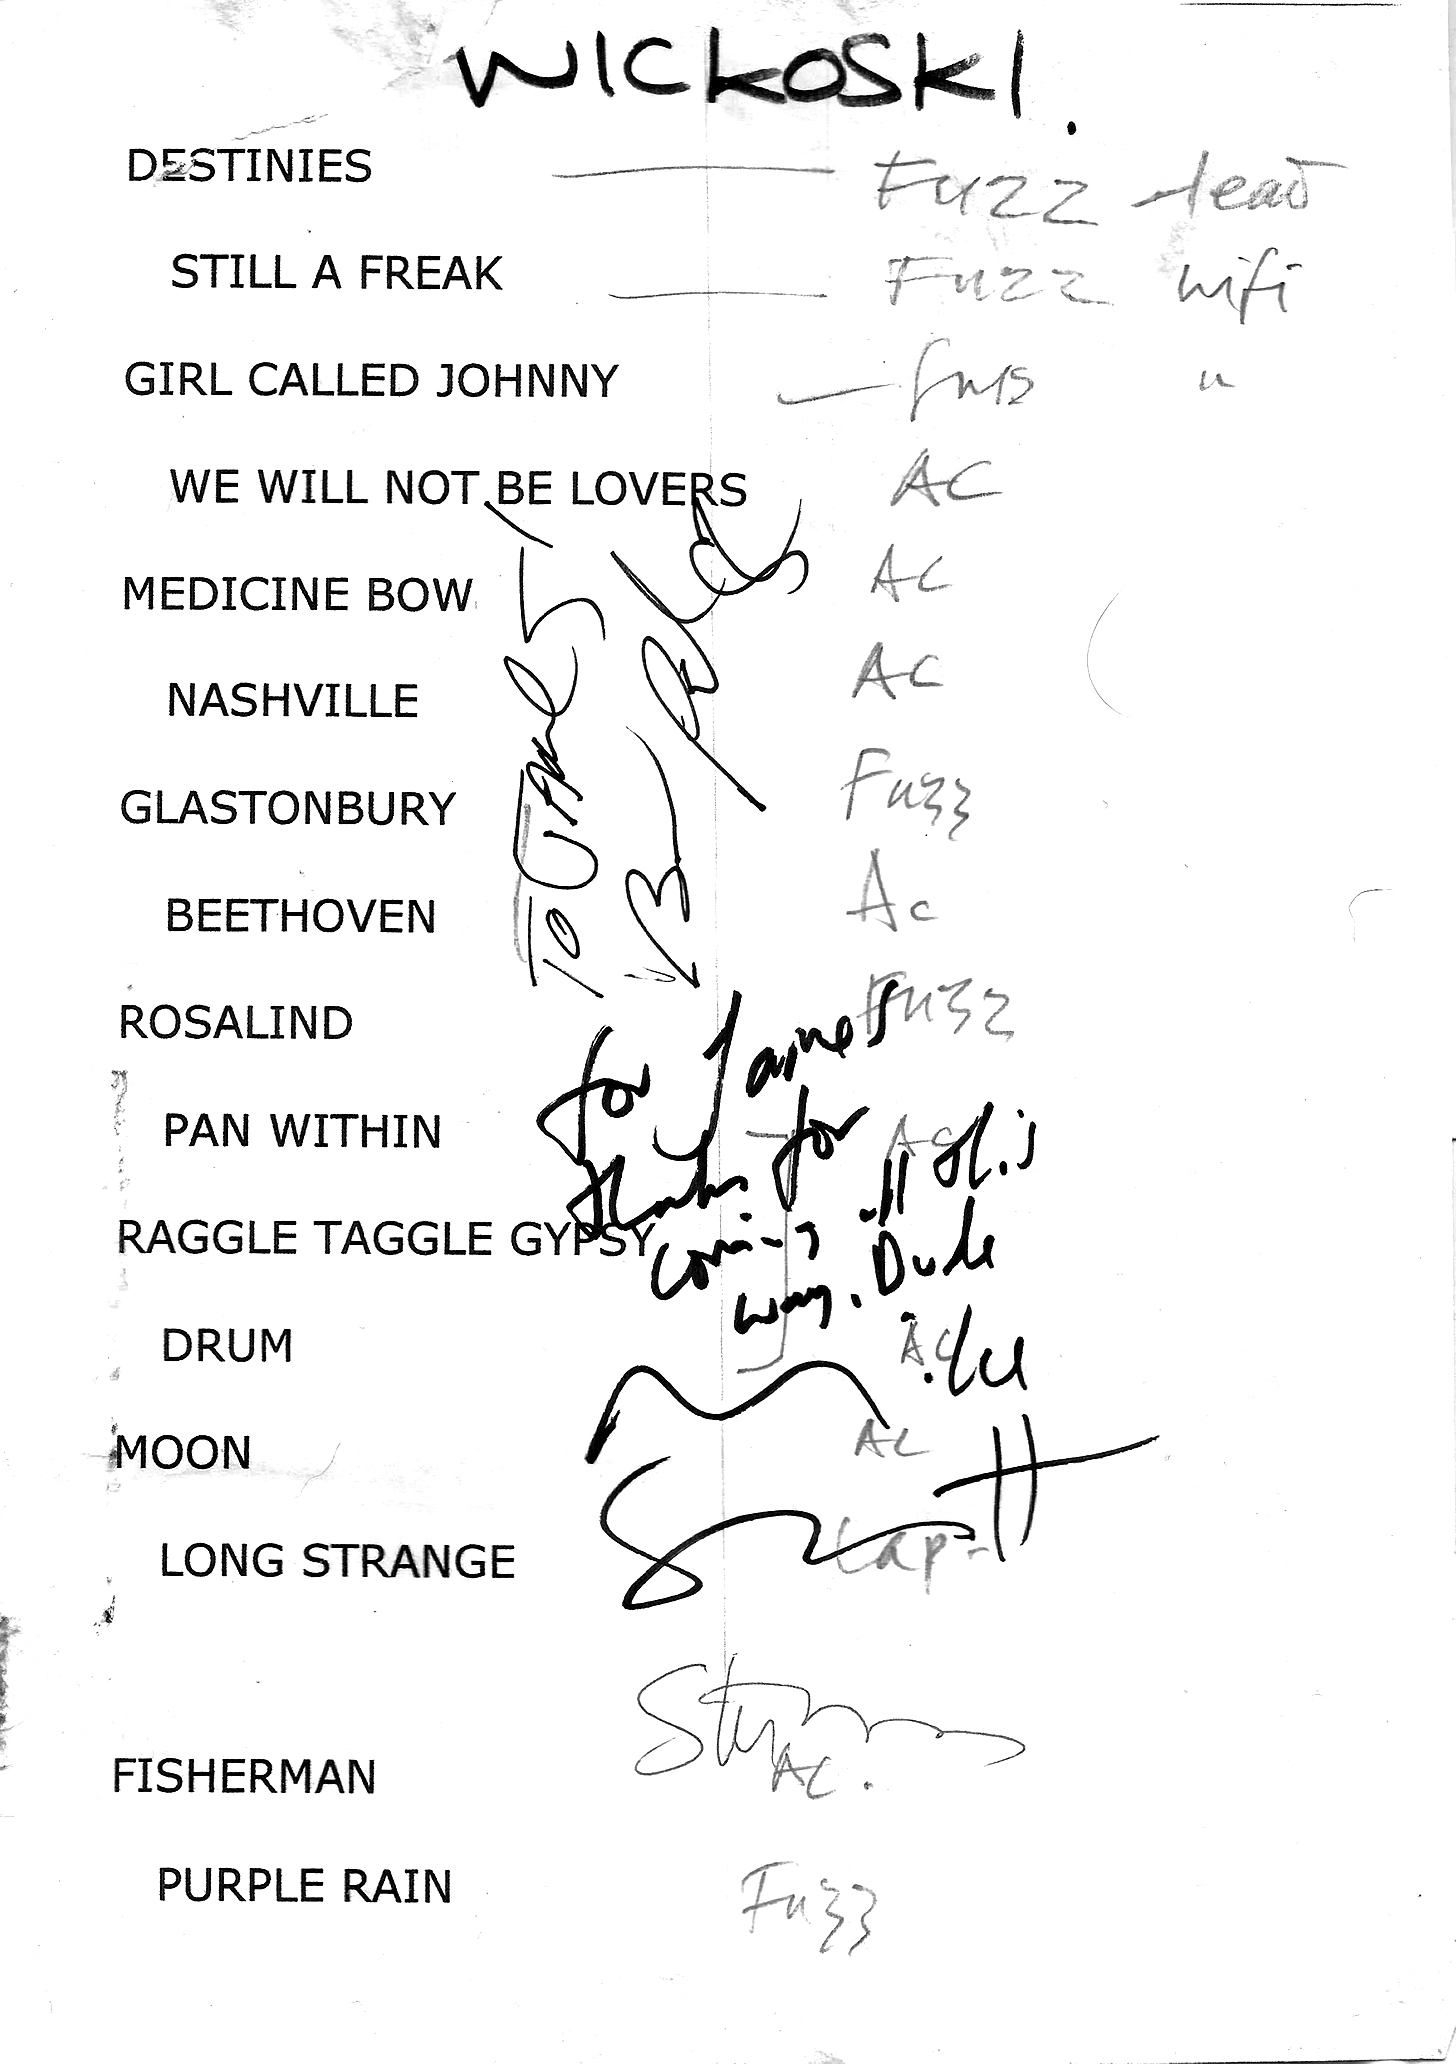 WICKOSKI.
DESTINIES Fuzz lead
STILL A FREAK Fuzz hifi
GIRL CALLED JOHNNY fuzz "
WE WILL NOT BE LOVERS AC
MEDICINE BOW AC
NASHVILLE AC
GLASTONBURY Fuzz
BEETHOVEN Ac
ROSALIND Fuzz
PAN WITHIN AC
RAGGLE TAGGLE GYPSY
DRUM AC
MOON AC
LONG STRANGE Lap
FISHERMAN AC.
PURPLE RAIN Fuzz
To James
for James
thanks for
coming all this
way. Dude